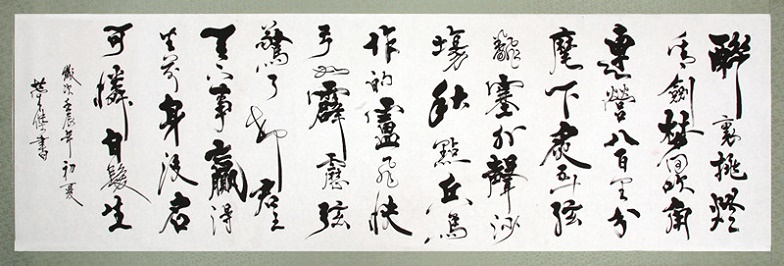 醉裏挑燈
看劍夢回吹角
連營八百里分
麾下炙五十弦
翻塞外聲沙
場秋點兵馬
作的盧飛快
弓如霹靂弦
驚了却君王
天下事贏得
生前身後名
可憐白髮生
歲次壬辰年初夏
書